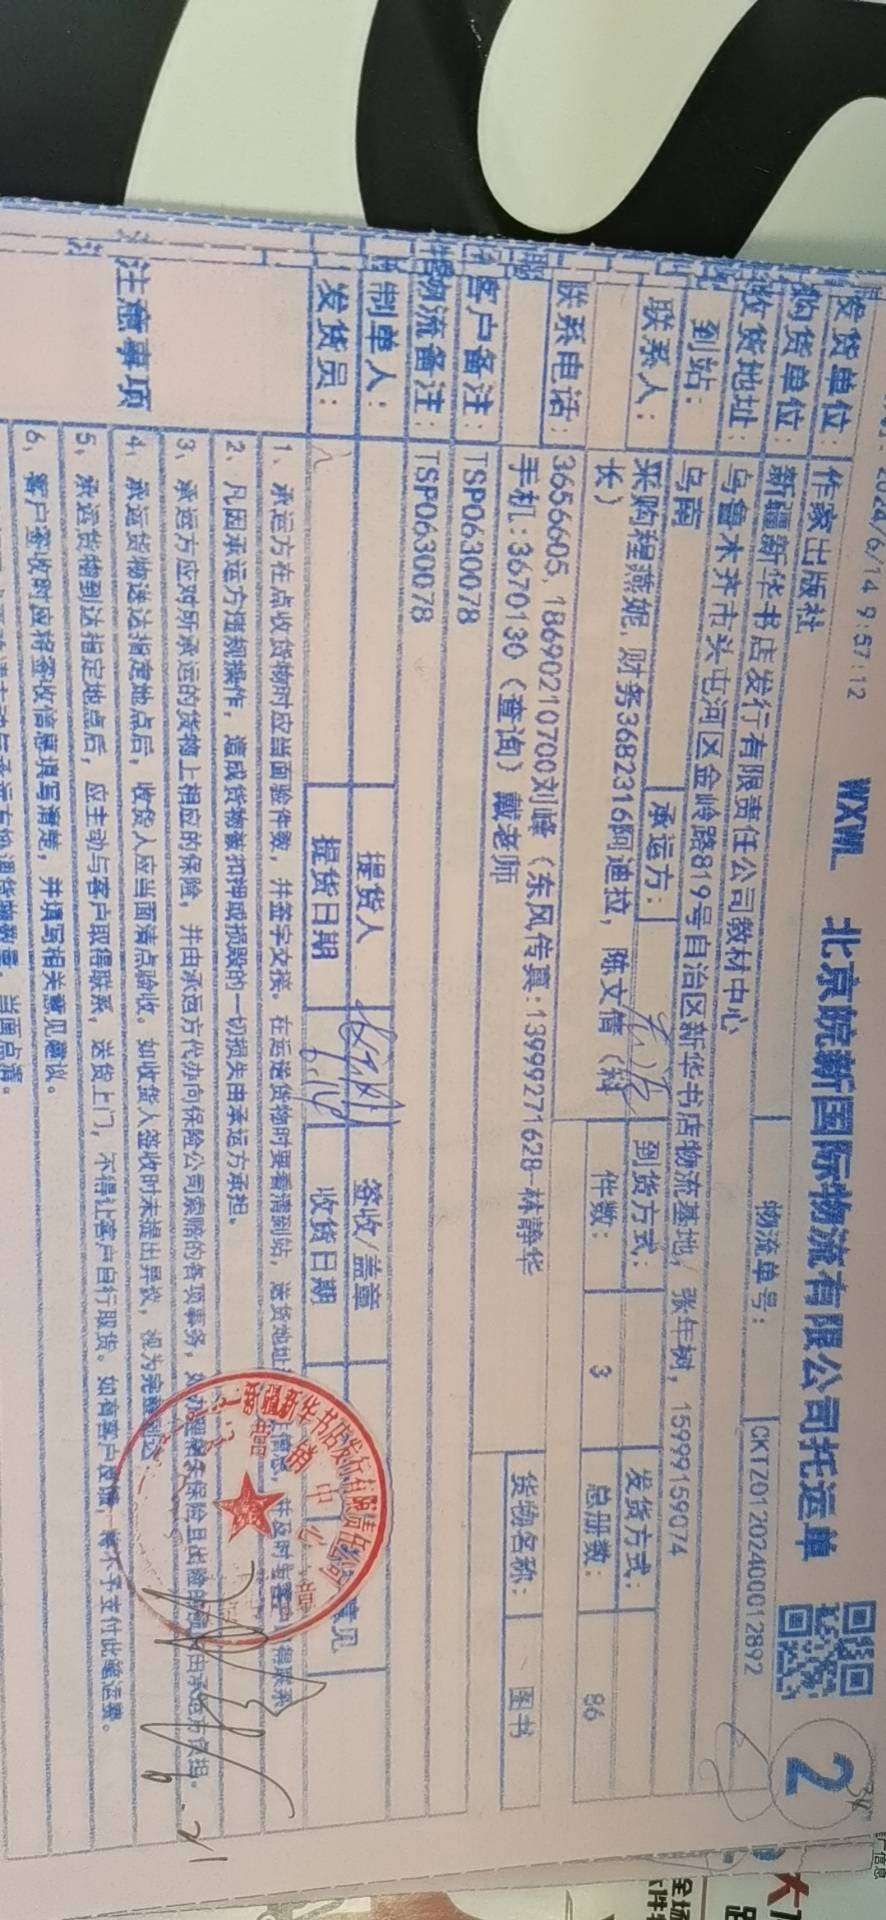 2024/6/14 9:57:12
WXWL 北京皖新国际物流有限公司托运单
2
物流单号： CKTZ01202400012892
发货单位： 作家出版社
购货单位： 新疆新华书店发行有限责任公司教材中心
收货地址： 乌鲁木齐市头屯河区金岭路819号自治区新华书店物流基地/ 张年树，15999159074
到站： 乌南 承运方： 到货方式： 发货方式：
联系人： 采购程燕妮,财务3682316阿迪拉，陈文倩（科长） 件数： 3 总册数： 86
联系电话： 3656605,18690210700刘峰（东风传真:13999271628-林静华
手机:3670130（查询）戴老师 货物名称： 图书
客户备注： TSP0630078
物流备注： TSP0630078
制单人： 提货人 签收/盖章 意见
发货员： 提货日期 6.14 收货日期
注意事项
1、承运方在点收货物时应当面验件数，并签字交接。在运送货物时要看清到站，送货地址
2、凡因承运方违规操作，造成货物被扣押或损毁的一切损失由承运方承担。
3、承运方应对所承运的货物上相应的保险，并由承运方代办向保险公司索赔的各项事务，
4、承运货物送达指定地点后，收货人应当面清点验收。如收货人签收时未提出异议，视为完整到达
5、承运货物到达指定地点后，应主动与客户取得联系，送货上门，不得让客户自行取货。如有客户反馈，一概不予支付此笔运费。
6、客户签收时应将签收信息填写清楚，并填写相关意见建议。
新疆新华书店发行有限责任公司